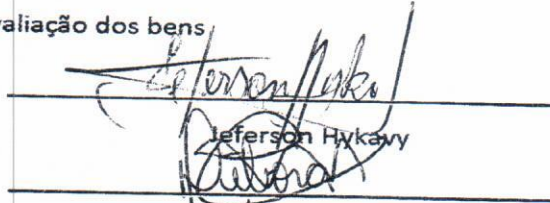 valiação dos bens
Jeferson Hyka
Jeferson Hykavy